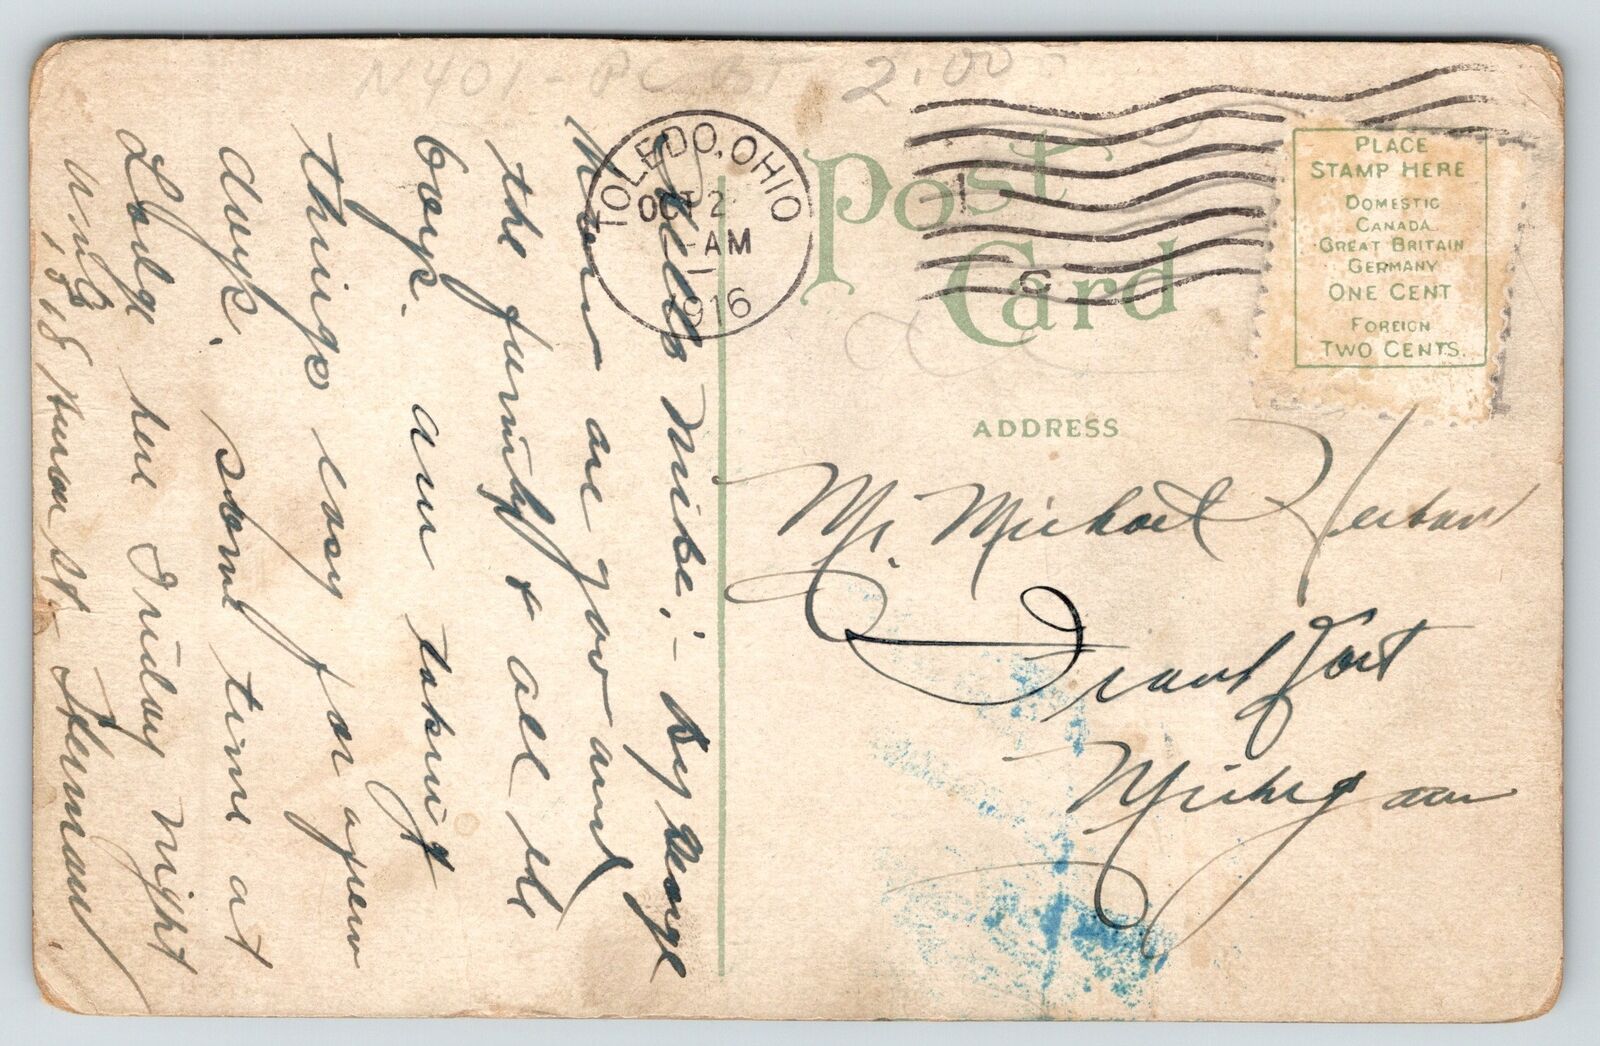 N401-PC
2.00
TOLEDO, OHIO
OCT 2
-AM
1916
Post
Card
PLACE
STAMP HERE
DOMESTIC
CANADA
GREAT BRITAIN
GERMANY
ONE CENT
FOREIGN
TWO CENTS.
ADDRESS
Mr. Michael
Frankfort
Michigan
Hello Mike;- By George
How are you and
the family & all the
boys. am taking
things easy for a few
days. some time at
Lodge here Friday night
1818 Huron St. Herman